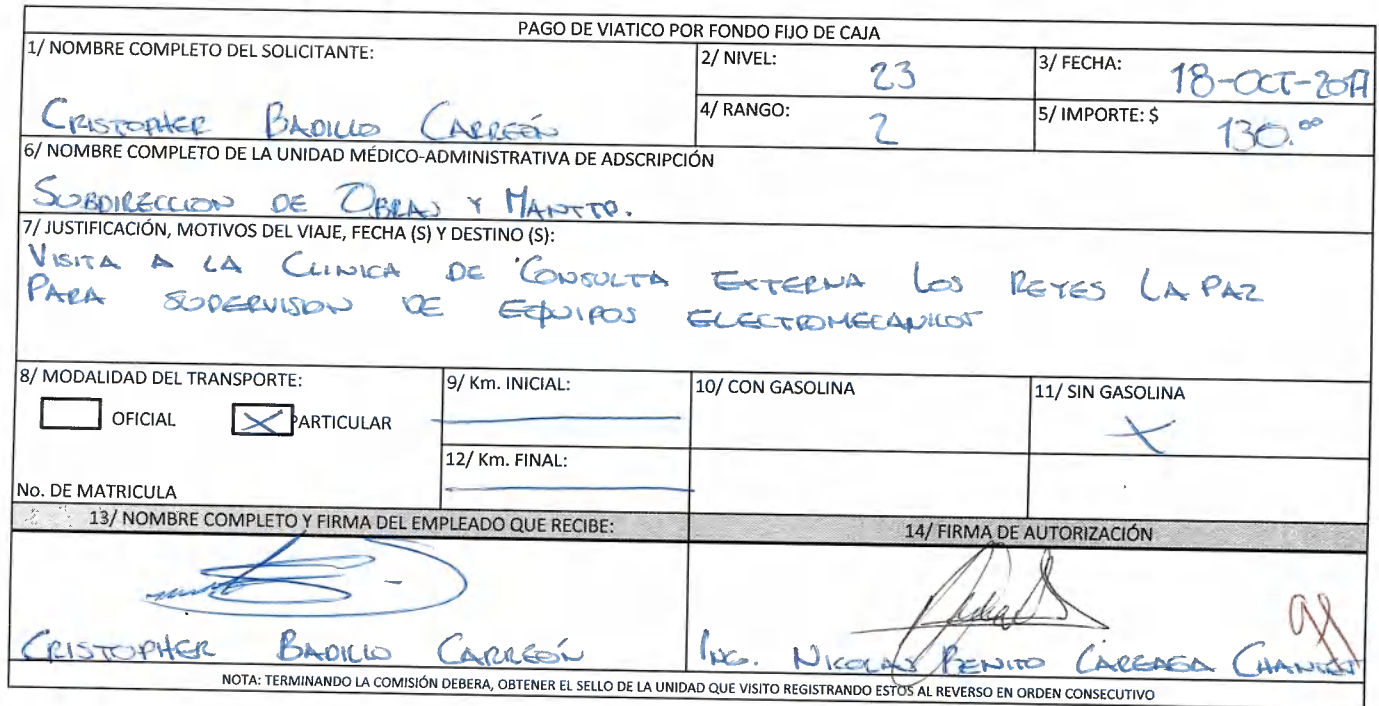 PAGO DE VIATICO POR FONDO FIJO DE CAJA
1/ NOMBRE COMPLETO DEL SOLICITANTE:
CRISTOPHER BADILLO CARREÓN
2/ NIVEL: 23
3/ FECHA: 18-OCT-2017
4/ RANGO: 2
5/ IMPORTE: $ 130.00
6/ NOMBRE COMPLETO DE LA UNIDAD MÉDICO-ADMINISTRATIVA DE ADSCRIPCIÓN
SUBDIRECCION DE OBRAS Y MANTTO.
7/ JUSTIFICACIÓN, MOTIVOS DEL VIAJE, FECHA (S) Y DESTINO (S):
VISITA A LA CLINICA DE CONSULTA EXTERNA LOS REYES LA PAZ
PARA SUPERVISION DE EQUIPOS ELECTROMECANICOS
8/ MODALIDAD DEL TRANSPORTE:
OFICIAL X PARTICULAR
No. DE MATRICULA
9/ Km. INICIAL:
10/ CON GASOLINA
11/ SIN GASOLINA
X
12/ Km. FINAL:
13/ NOMBRE COMPLETO Y FIRMA DEL EMPLEADO QUE RECIBE:
14/ FIRMA DE AUTORIZACIÓN
CRISTOPHER BADILLO CARREÓN
ING. NICOLAS BENITO CAREAGA
NOTA: TERMINANDO LA COMISIÓN DEBERA, OBTENER EL SELLO DE LA UNIDAD QUE VISITO REGISTRANDO ESTOS AL REVERSO EN ORDEN CONSECUTIVO